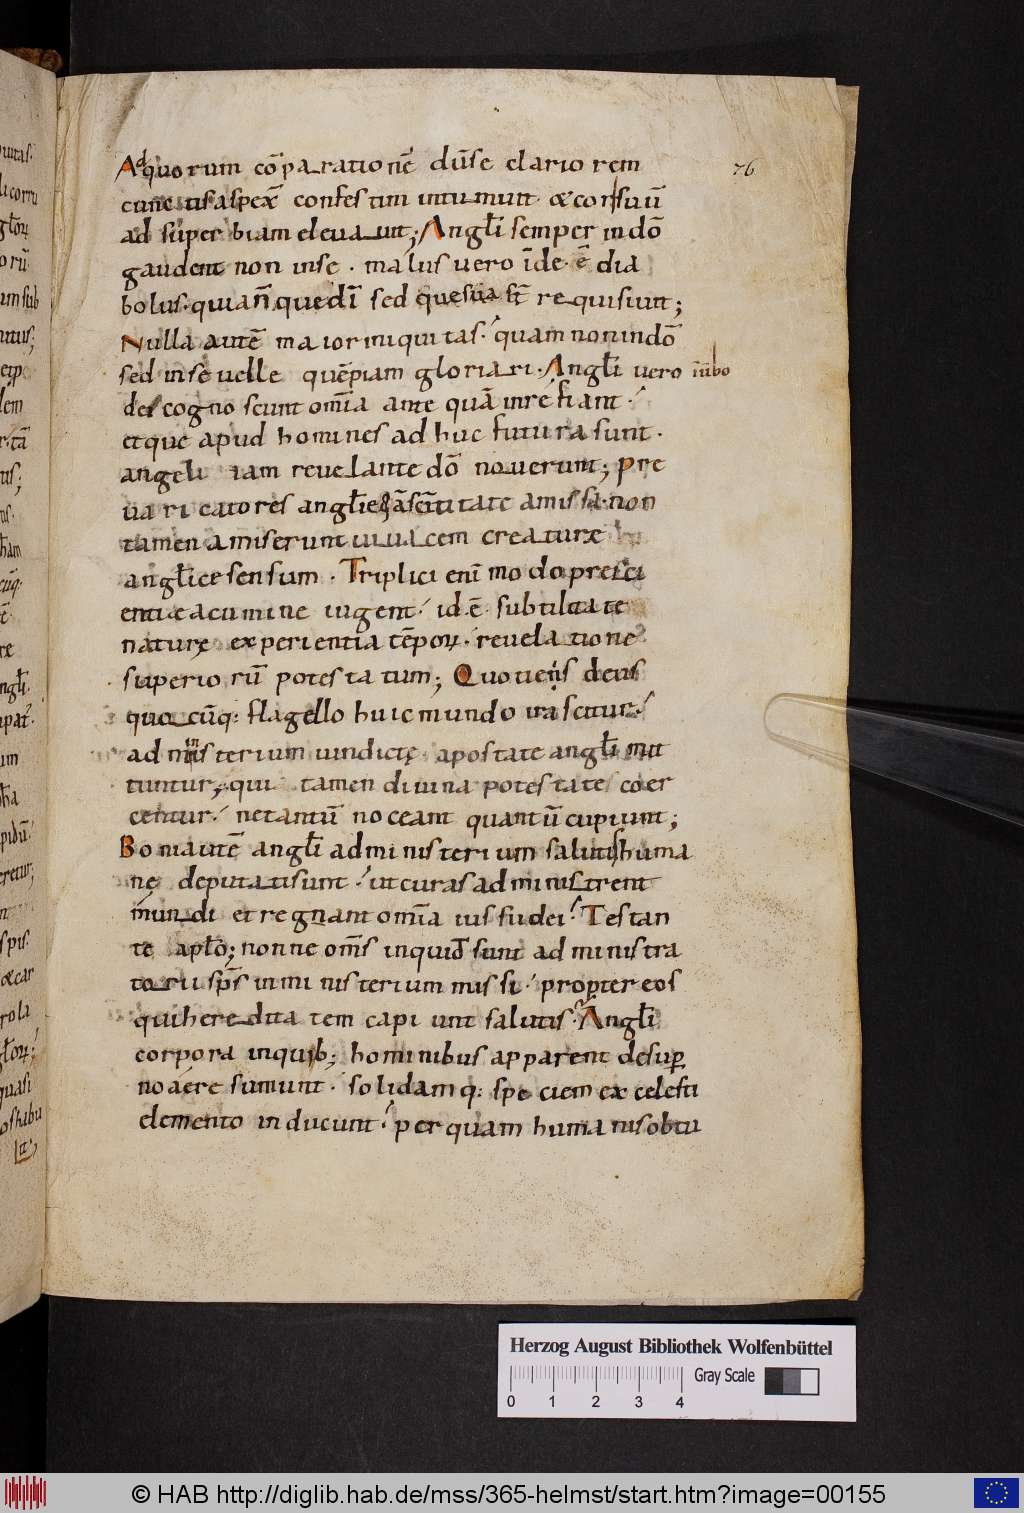 Adquorum cōparationē dūse clariorem
cunctis aspex̄ confestim intumuit· & corsuū
ad superbiam eleuauit; Angl̄i semper in dō
gaudent non inse · malus uero īde· ē dia
bolus· quia n̄ que dī sed que sua st̄ requisiuit;
Nulla autē maior iniquitas· quam non in dō
sed in se uelle quēpiam gloriari· Angl̄i uero in ūbo
dei cognoscunt om̄ia ante quā in rē fiant·
et que apud homines ad huc futura sunt·
angeli iam reuelante dō nouerunt; Pre
uaricatores angl̄i & ā sc̄itate amissa· non
tamen amiserunt uiuacem creaturę
angl̄ice sensum · Triplici enī modo presci
entię acumine uigent· id ē· subtilitate
naturę experientia tēpoꝝ· reuelatione
superiorū potestatum; Quotiens deus
quocūq: flagello huic mundo irascitur·
ad ministerium uindictę· apostate angl̄i mit
tuntur, qui tamen diuina potestate coer
centur· ne tantū noceant quantū cupiunt;
Boni autē angl̄i ad ministerium salutis huma
nę deputati sunt· ut curas administrent
mundi et regnant om̄ia iussu dei· Testan
te apl̄o; nonne om̄s inquid sunt administra
torii sp̄s in ministerium missi· propter eos
qui hereditatem capiunt salutis· Angl̄i
corpora in quib; hominibus apparent desuꝑ
no aere sumunt· solidamq: speciem ex celesti
elemento inducunt· per quam humanis obtu
76
Herzog August Bibliothek Wolfenbüttel
Gray Scale
0 1 2 3 4
© HAB http://diglib.hab.de/mss/365-helmst/start.htm?image=00155